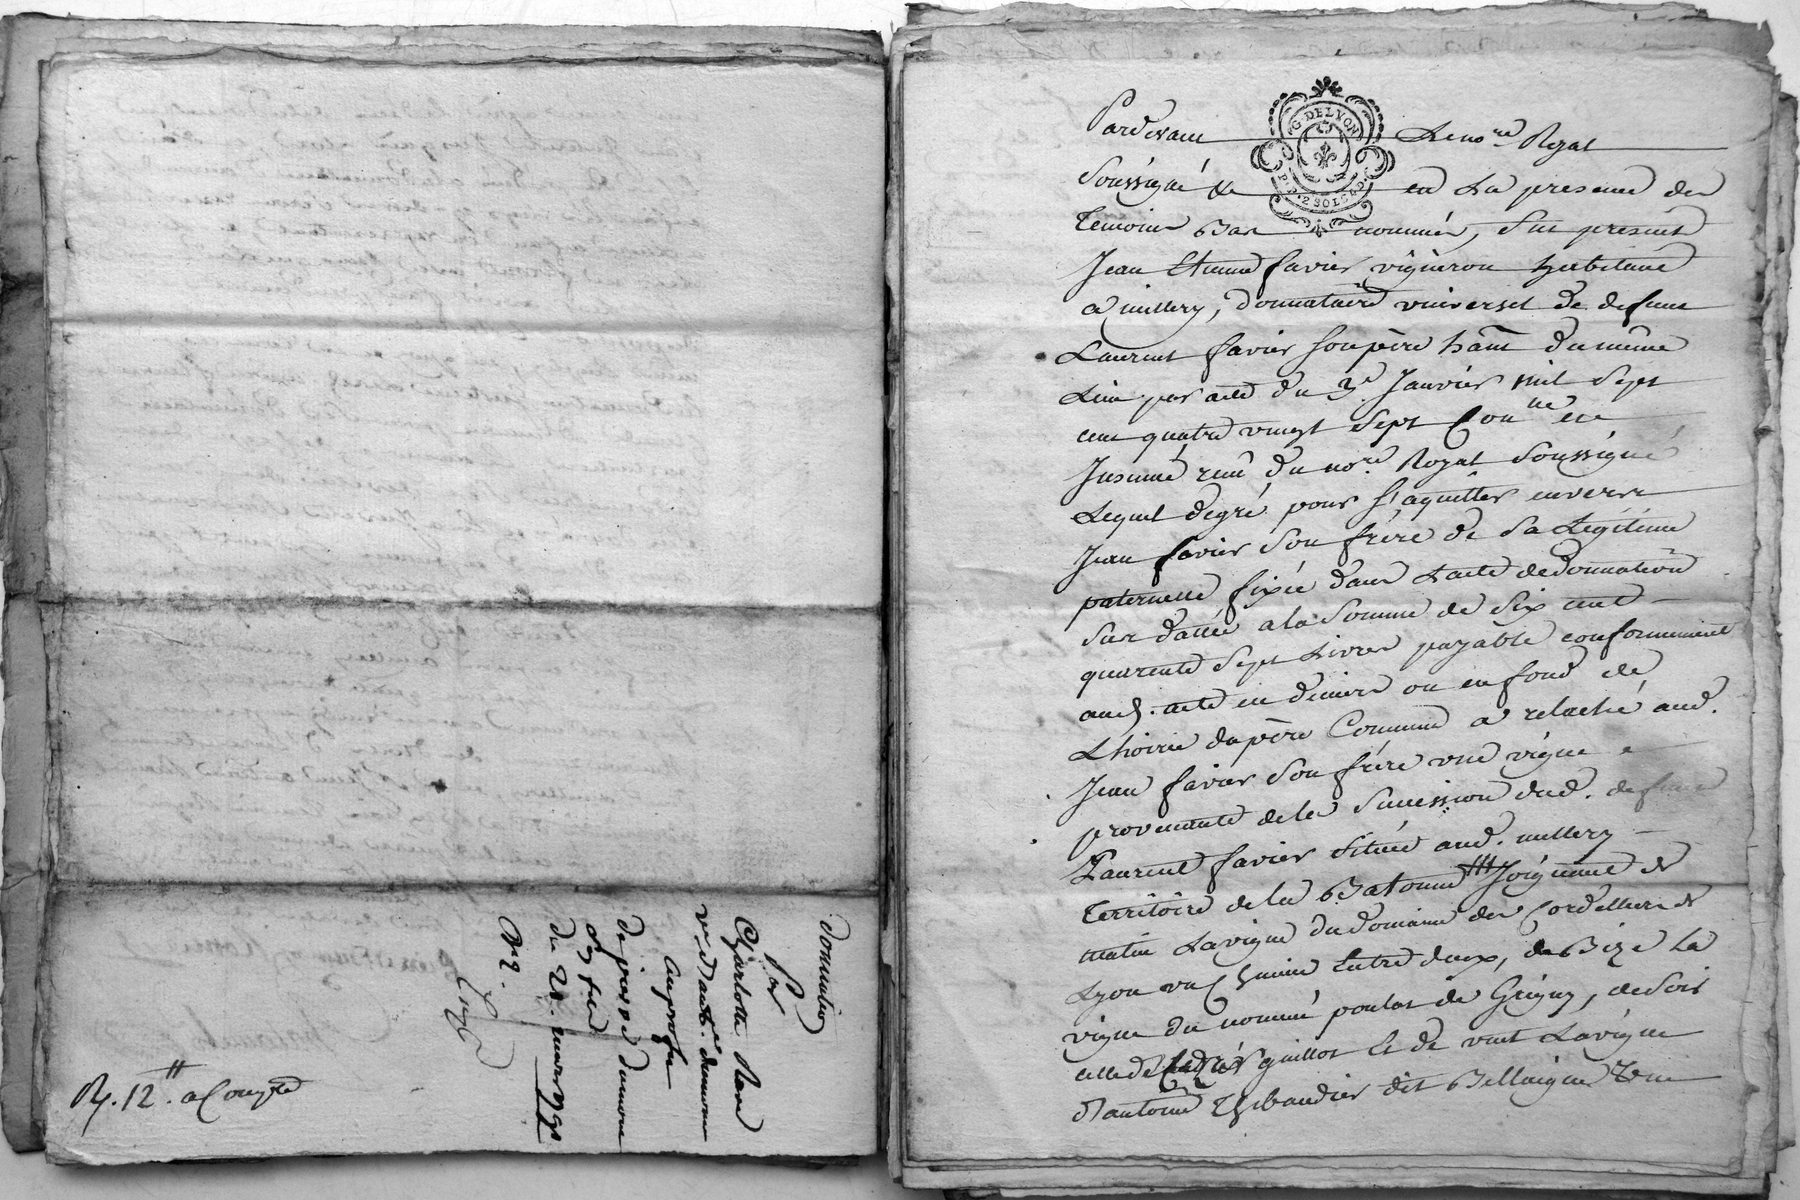 donnation
Par
Charlotte
ve d'ant.
au profit
de pierre
du 21.
Nº 2.
R. 12ᵗᵗ. a Compte
G. DE LYON
P.P. 2 SOLS 4 D.
Pardevant Le noʳᵉ Royal
Soussigné & en La presence des
temoins Bas nommés, fut present
Jean Etienne favier vigneron habitant
a millery, donnataire universel de defunt
Laurent favier son père hānt du même
Lieu par acte du 3ᵉ Janvier mil Sept
cent quatre vingt Sept Conᵗˡᵉ et
Insinué reçu du noʳᵉ Royal Soussigné
Lequel degré pour s'aquitter envers
Jean favier son frère de Sa Légitime
paternelle fixée dans L'acte de donnation
Sus datté a la Somme de Six cent
quarente Sept Livres payable conformement
aud. acte en deniers ou en fond de
L'hoirie du père Commun a relaché aud.
Jean favier Son frère une vigne
provenante de la Succession dud. defunt
Laurent favier Située aud. millery
territoire de la Batonne Joignant de
matin La vigne du domaine des Cordelliers de
Lyon un Chemin Entre deux, de Bize La
vigne du nommé poulat de Grigny, de Soir
celle de guillot Et de vent La vigne
d'antoine Thibaudier dit Bellaigue